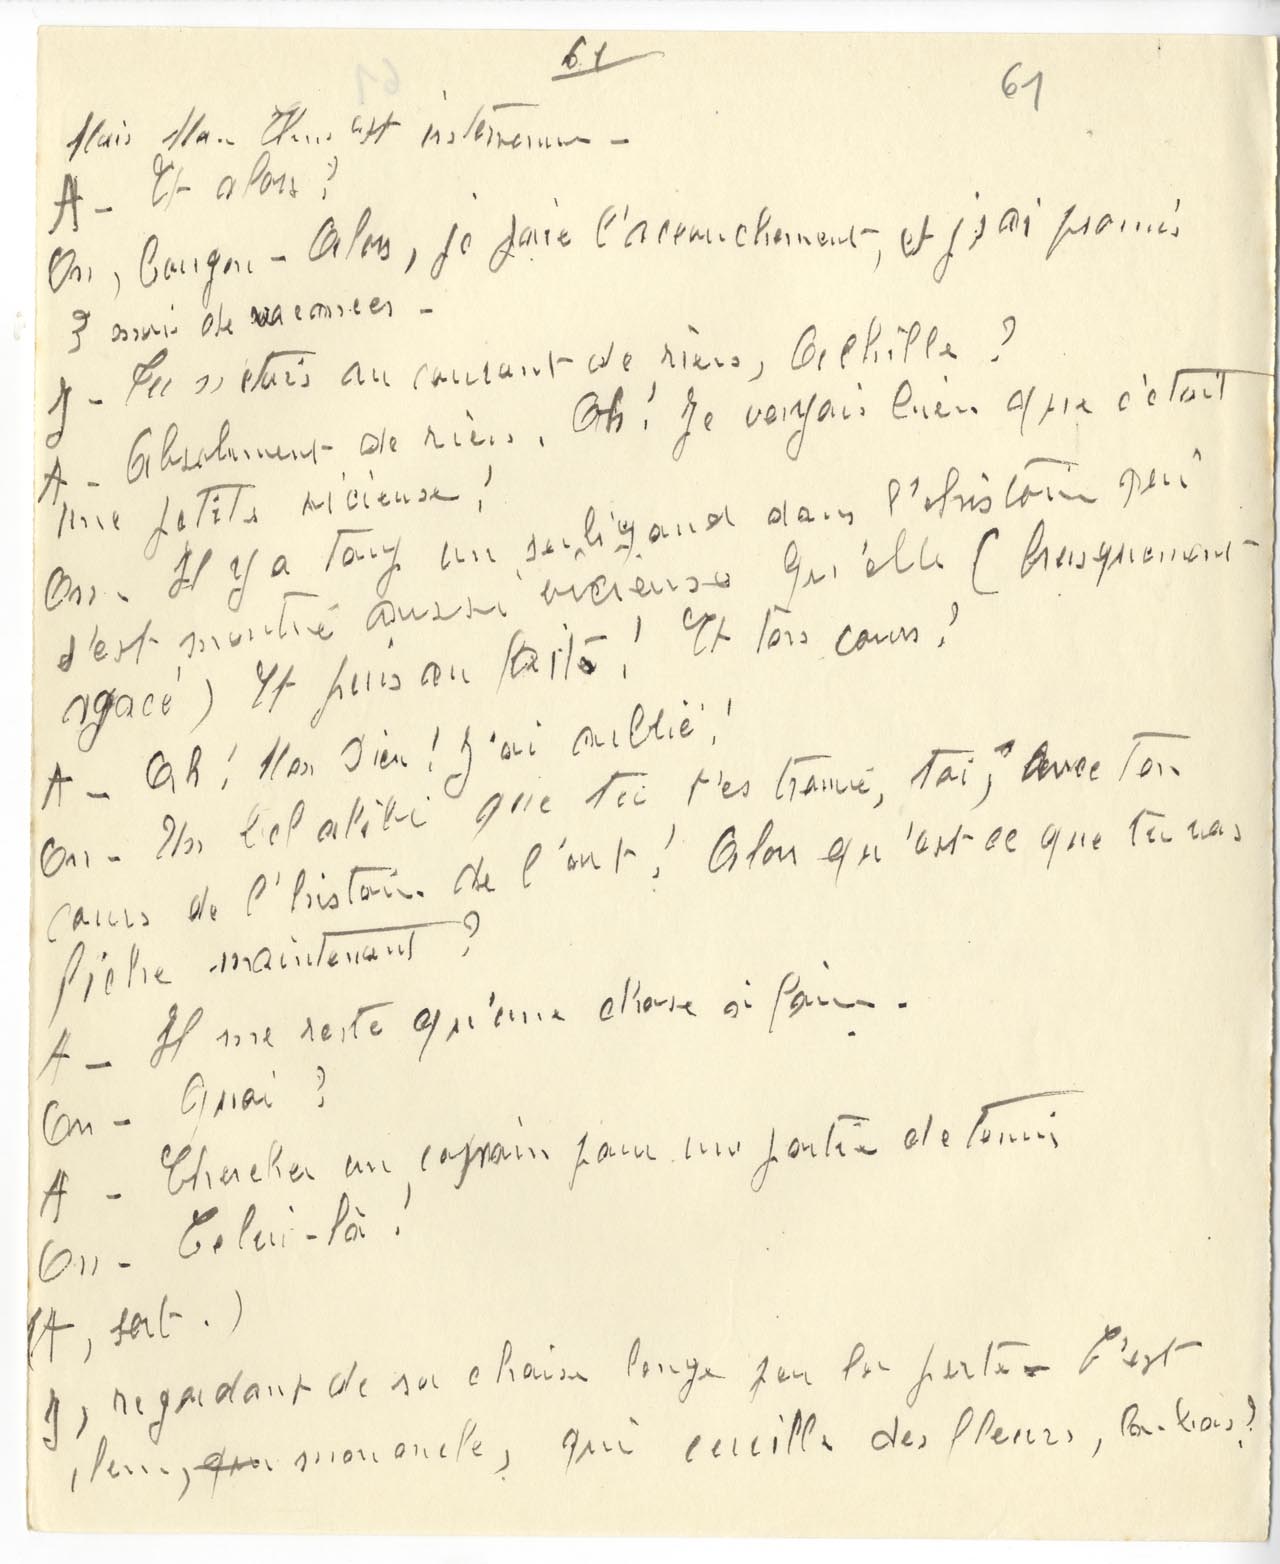 61
61
Mais Man est intervenue -
A - Et alors ?
On, bougon - Alors, je paie l'accouchement, et j'ai promis
3 mois de vacances -
J - Tu n'étais au courant de rien, Achille ?
A - Absolument de rien. Oh ! Je voyais bien que c'était
une petite vicieuse !
On - Il y a un seul dans l'histoire qui
s'est montré aussi vicieuse qu'elle (brusquement
agacé) Et puis au fait ! Et ton cours ?
A - Ah ! Mon Dieu ! J'ai oublié !
On - Un bel alibi que tu t'es trouvé, toi, avec ton
cours de l'histoire de l'art ! Alors qu'est-ce que tu vas
fiche maintenant ?
A - Il me reste qu'une chose à faire -
On - Quoi ?
A - Chercher un copain pour une partie de tennis
On - Celui-là !
(A, sort.)
J, regardant de sa chaise longue par la porte - C'est
mon oncle, qui cueille des fleurs, là-bas ?